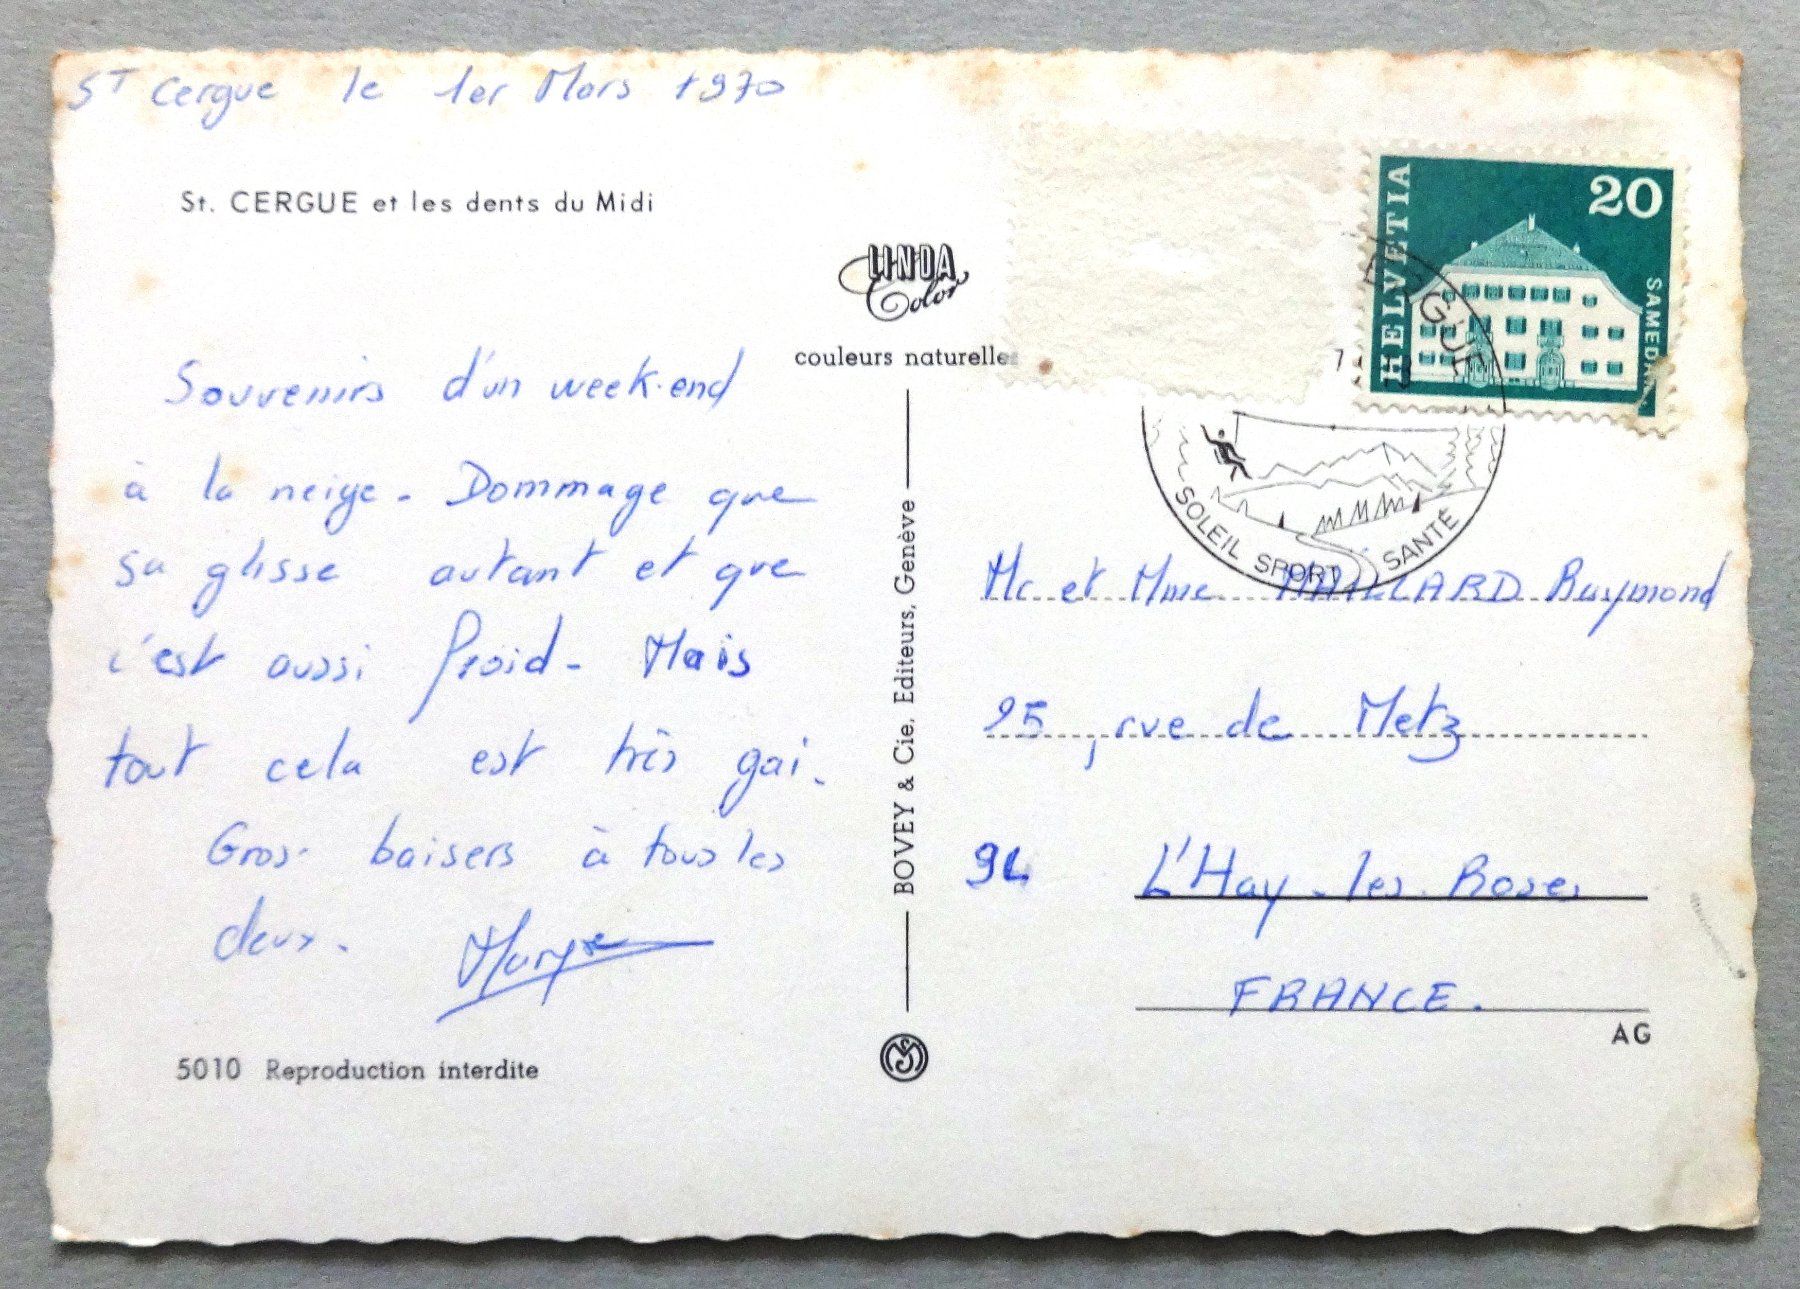 ST Cergue le 1er Mars 1970
St. CERGUE et les dents du Midi
LINDA
Color
couleurs naturelles
Souvenirs d'un week-end
à la neige - Dommage que
sa glisse autant et que
c'est aussi froid - Mais
tout cela est très gai.
Gros baisers à tous les
deux. Maryse
5010 Reproduction interdite
BOVEY & Cie, Editeurs, Genève
HELVETIA
20
SAMEDAN
ERGUE
SOLEIL SPORT SANTÉ
Mr et Mme MAILLARD Raymond
25, rue de Metz
94 L'Hay-les-Roses
FRANCE.
AG